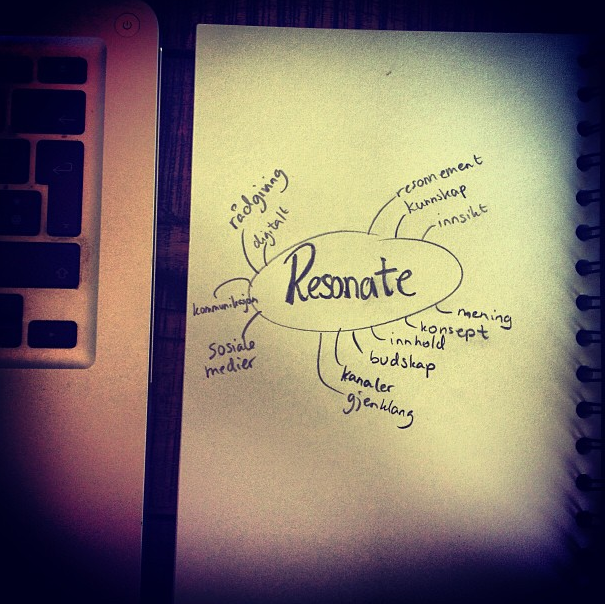 rådgiving
digitalt
resonnement
kunnskap
innsikt
Resonate
kommunikasjon
sosiale
medier
mening
konsept
innhold
budskap
kanaler
gjenklang